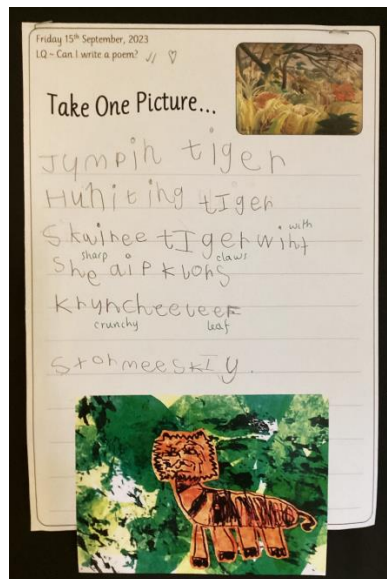 Friday 15th September, 2023
LQ ~ Can I write a poem?
Take One Picture...
Jumpin tiger
Huniting tIger
Skairee tIger wiht
with
She aip klors
sharp claws
Kruncheeleef
crunchy leaf
Stormee skIy.